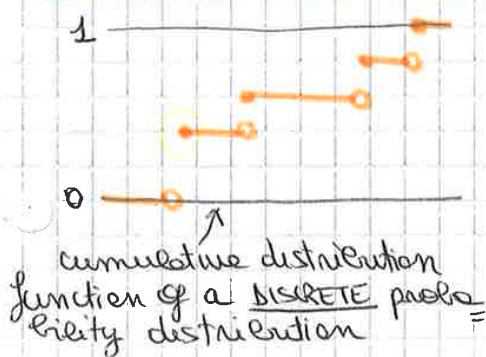 1
0
cumulative distribution
function of a DISCRETE proba=
bility distribution